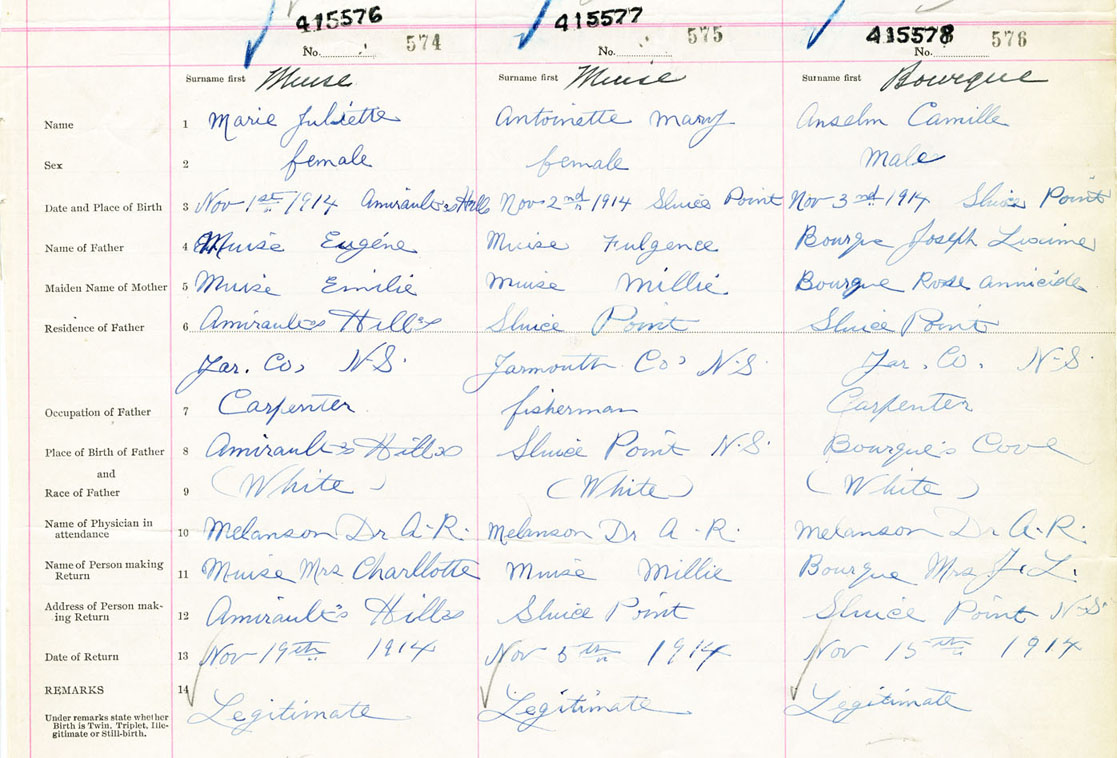 415576 415577 415578
No. 574 No. 575 No. 576
Surname first Muise Surname first Muise Surname first Bourque
Name 1 Marie Juliette Antoinette Mary Anselm Camille
Sex 2 female female Male
Date and Place of Birth 3 Nov 1st 1914 Amirault's Hills Nov 2nd 1914 Sluice Point Nov 3nd 1914 Sluice Point
Name of Father 4 Muise Eugéne Muise Fulgence Bourque Joseph
Maiden Name of Mother 5 Muise Emilie Muise Millie Bourque Rose Annicide
Residence of Father 6 Amirault's Hills Sluice Point Sluice Point
Yar. Co, N-S. Yarmouth Co, N-S. Yar. Co. N-S
Occupation of Father 7 Carpenter fisherman Carpenter
Place of Birth of Father 8 Amirault's Hills Sluice Point N-S. Bourque's Cove
and
Race of Father 9 (White) (White) (White)
Name of Physician in
attendance 10 Melanson Dr A-R. Melanson Dr A-R. Melanson Dr A-R.
Name of Person making
Return 11 Muise Mrs Charllotte Muise Millie Bourque Mrs J. L.
Address of Person mak-
ing Return 12 Amirault's Hills Sluice Point Sluice Point N-S
Date of Return 13 Nov 19th 1914 Nov 5th 1914 Nov 15th 1914
REMARKS 14
Legitimate Legitimate Legitimate
Under remarks state whether
Birth is Twin, Triplet, Ille-
gitimate or Still-birth.